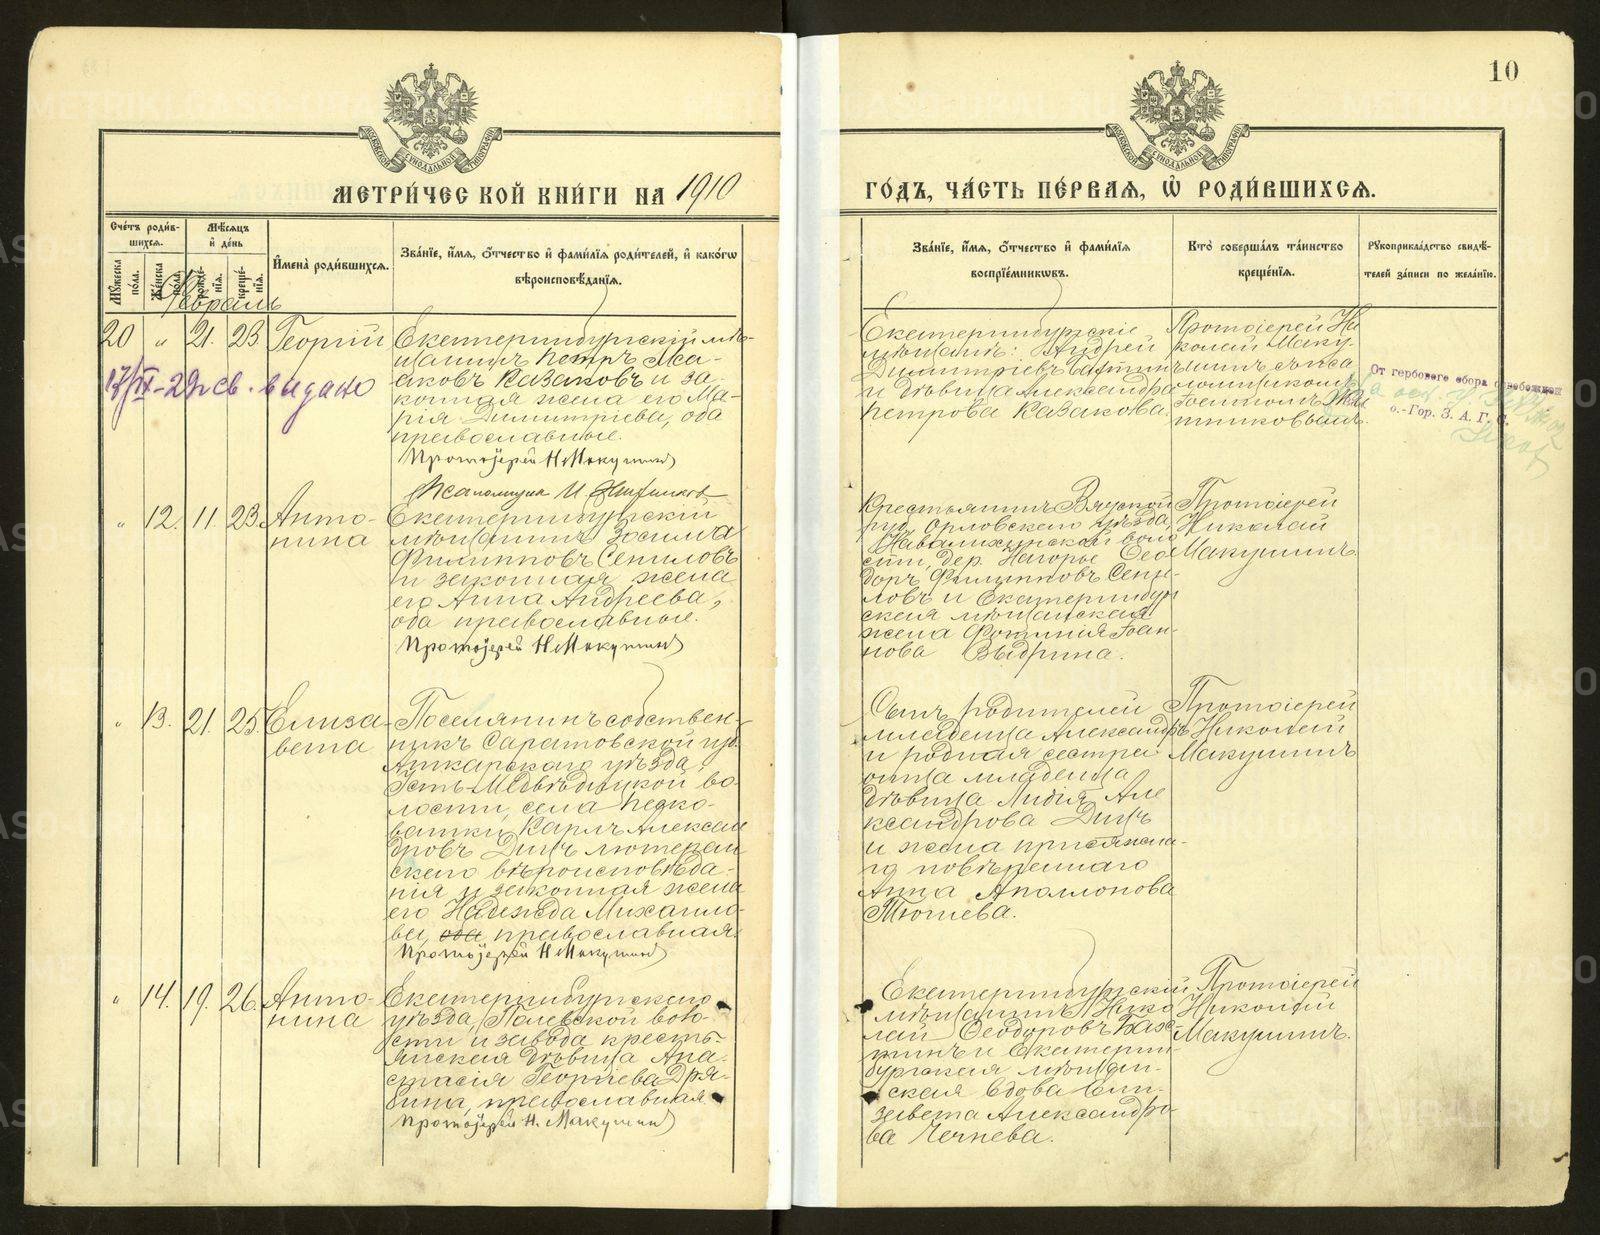 10
МЕТРИ́ЧЕСКОЙ КНИ́ГИ НА 1910
ГО́ДЪ, ЧА́СТЬ ПЕ́РВАЯ, Ѡ РОДИ́ВШИХСЯ.
Сче́тъ роди́в-
шихся.
Мꙋ́жеска по́ла.
Же́нска по́ла.
Мѣ́сяцъ
и҆ де́нь
рожде́-
нїѧ.
креще́-
нїѧ.
И҆мена̀ роди́вшихся.
Зва́нїе, и҆́мя, о҆́тчество и҆ фами́лїя роди́телей, и҆ како́гѡ
вѣроисповѣ́данїя.
Зва́нїе, и҆́мя, о҆́тчество и҆ фами́лїя
воспрїе́мникѡвъ.
Кто̀ соверша́лъ та́инство
креще́нїя.
Рꙋкоприкла́дство свидѣ́-
телей за́писи по жела́нїю.
Февраль
20 " 21. 23. Георгій
17/IX-29 св. выдано
Екатеринбургскій мѣ-
щанинъ Петръ Иса-
аковъ Казаковъ и за-
конная жена его Ма-
рія Димитріева, оба
православные.
Протоіерей Н Макушинъ
Псаломщик И.
Екатеринбургскіе
мѣщане: Андрей
Димитріевъ
и дѣвица Александра
Петрова Казакова.
Протоіерей Ни-
колай Маку-
шинъ съ пса-
ломщикомъ
Іоанномъ
От гербового сбора освобожден
о.-Гор. З. А. Г. С.
" 12. 11. 23. Анто-
нина
Екатеринбургскій
мѣщанинъ Зосима
Филипповъ Сениловъ
и законная жена
его Анна Андреева,
оба православные.
Протоіерей Н Макушинъ
Крестьянинъ Вятской
губ. Орловскаго уѣзда,
воло-
сти, дер. Нагорье Ѳео-
доръ Филипповъ Сени-
ловъ и Екатеринбур
ская мѣщанская
жена Фотинія Іоан-
нова Выдрина.
Протоіерей
Николай
Макушинъ.
" 13. 21. 25. Елиза-
вета
Поселянинъ собствен-
никъ Саратовской губ.
Аткарскаго уѣзда,
Усть-Медвѣдицкой во-
лости, села
Карлъ Алексан
дровъ Дицъ лютеран
скаго вѣроисповѣда-
нія и законная жена
его Надежда Михаило-
ва, оба православная.
Протоіерей Н Макушинъ
Сынъ родителей
младенца Александръ
и родная сестра
отца младенца
дѣвица Лидія Але
ксандрова Дицъ
и жена присяжна-
го повѣреннаго
Анна Аполлонова
Тюшева.
Протоіерей
Николай
Макушинъ
" 14. 19. 26. Анто-
нина
Екатеринбургскаго
уѣзда, Полевской воло-
сти и завода кресть-
янская дѣвица Ана-
стасія Георгіева Дря-
бина, православная.
Протоіерей Н. Макушинъ
Екатеринбургскій
мѣщанинъ Нико
лай Ѳеодоровъ Бах-
тинъ и Екатерин-
бургская мѣщан-
ская вдова Ели-
завета Александро-
ва Чечнева.
Протоіерей
Николай
Макушинъ.